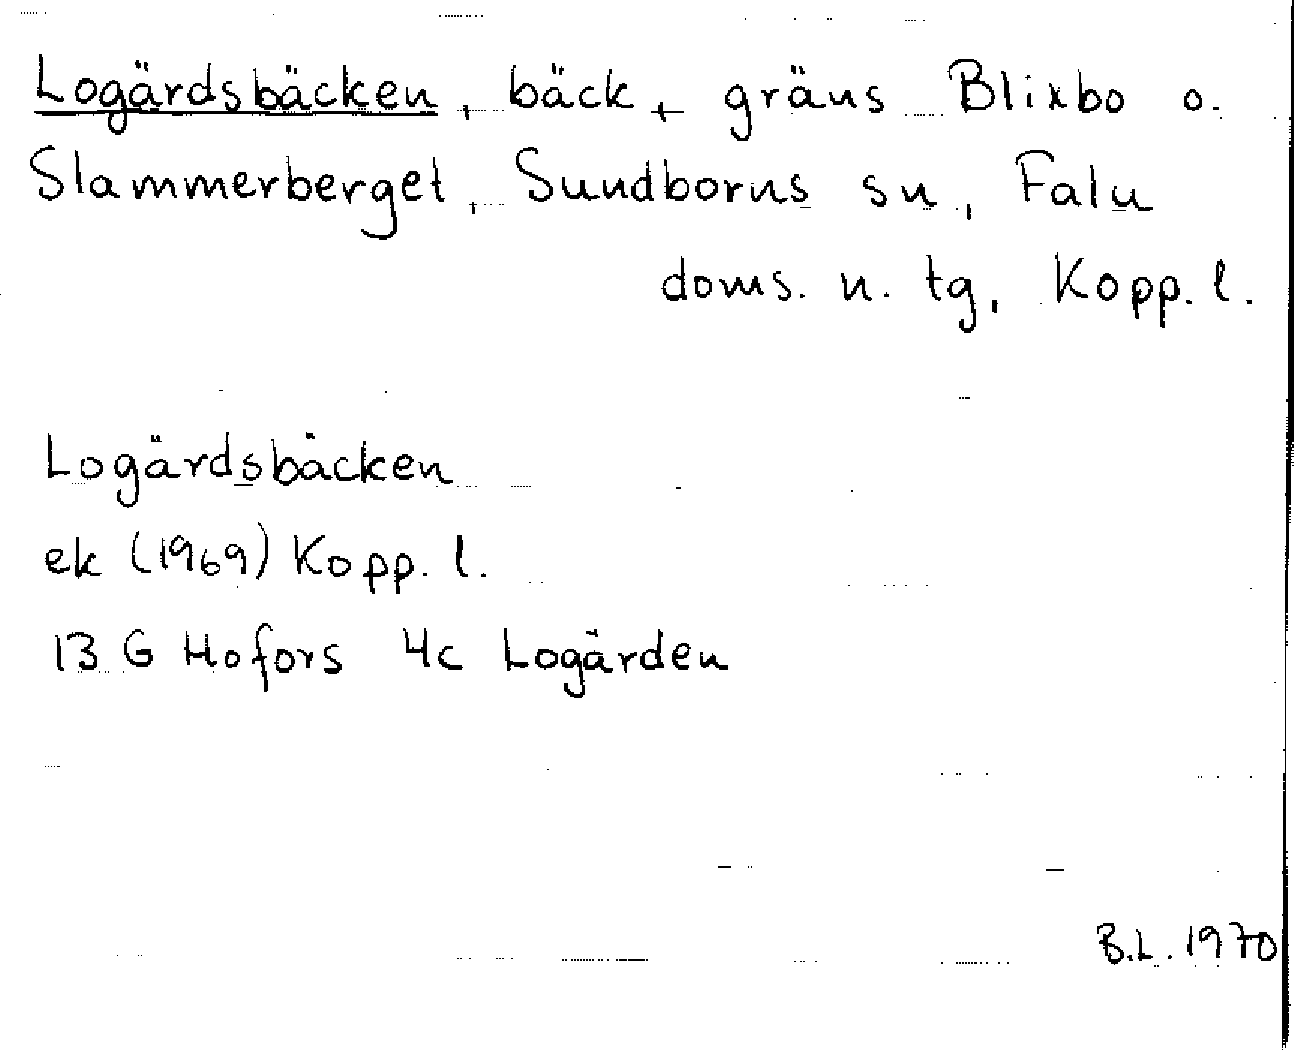 Logärdsbäcken, bäck, gräns Blixbo o.
Slammerberget, Sundborns sn, Falu
doms. n. tg, Kopp. l.
Logärdsbäcken
ek (1969) Kopp. l.
13 G Hofors 4c Logärden
B.L. 1970